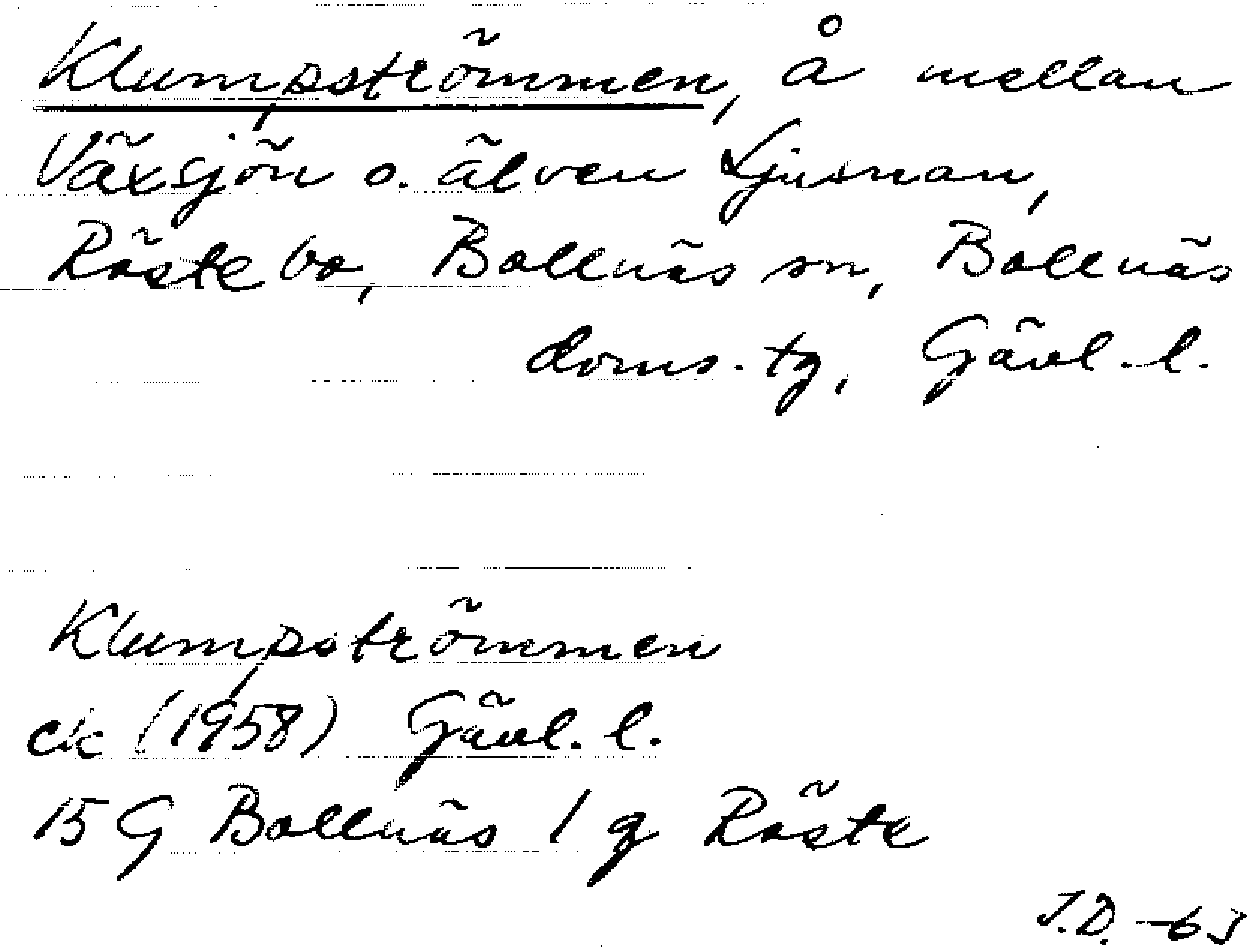 Klumpströmmen, å mellan
Växsjön o. älven Ljusnan,
Röstebo, Bollnäs sn, Bollnäs
doms. tg, Gävl. l.
Klumpströmmen
ek (1958) Gävl. l.
15 G Bollnäs 1 g Röste
J.D. -63